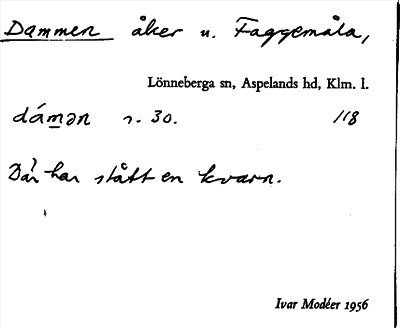 Dammen åker u. Faggemåla,
Lönneberga sn, Aspelands hd, Klm. l.
dámən r. 30. 118
Där har stått en kvarn.
Ivar Modéer 1956